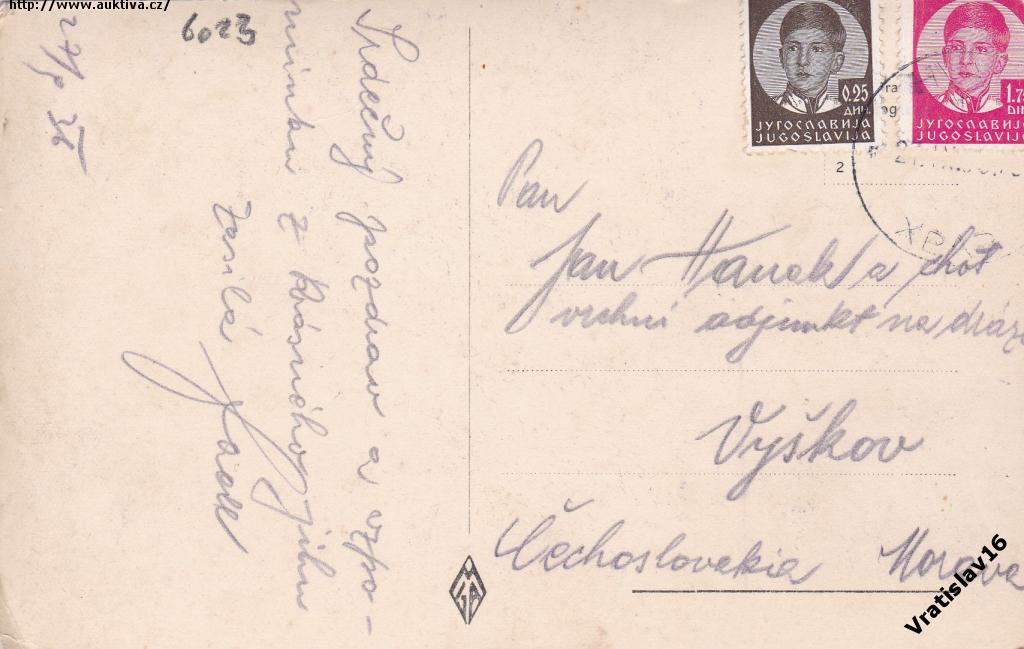 http://www.auktiva.cz/
6023
27/9 36
Srdečný pozdrav a vzpo-
mínku z krásného jihu
zasílá
0.25
ДИН.
ЈУГОСЛАВИЈА
JUGOSLAVIJA
1.75
DIN.
ЈУГОСЛАВИЈА
JUGOSLAVIJA
2
Pan
Jan Hanák a choť
vrchní adjunkt na dráze
Vyškov
Čechoslovakia Morava
MGA
Vratislav16